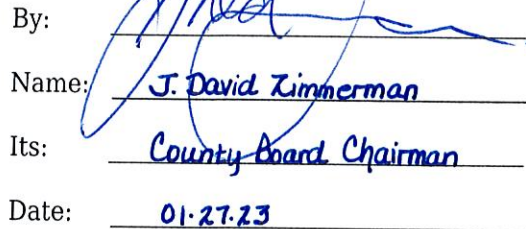 By:
Name: J. David Zimmerman
Its: County Board Chairman
Date: 01.27.23